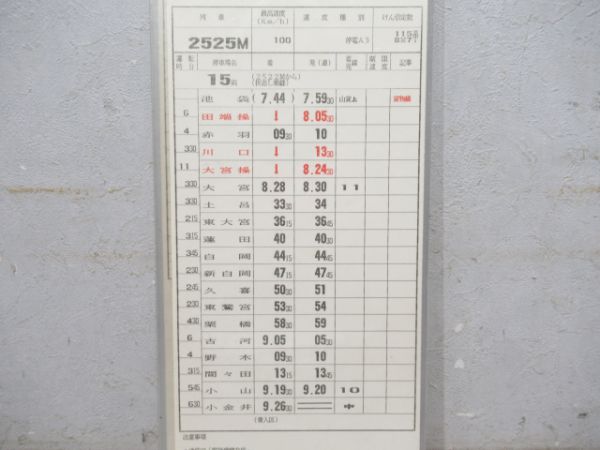 列車 最高速度(Km/h) 速度種別 けん引定数
2525M 100 停電A5 115系
運転時分 停車場名 着 発(通) 着線発線 制限速度 記事
15両 (2522Mから)
池袋 (7.44) 7.59 00 山貨上 貨物線
6 田端操 ↓ 8.05 00
4 赤羽 09 30 10
3 30 川口 ↓ 13 30
11 大宮操 ↓ 8.24 30
3 30 大宮 8.28 8.30 11
3 30 土呂 33 30 34
2 15 東大宮 36 15 36 45
3 15 蓮田 40 40 30
3 45 白岡 44 15 44 45
2 30 新白岡 47 15 47 45
2 45 久喜 50 30 51
2 30 東鷲宮 53 30 54
4 30 栗橋 58 30 59
6 古河 9.05 05 30
4 野木 09 30 10
3 15 間々田 13 15 13 45
5 45 小山 9.19 30 9.20 10
6 30 小金井 9.26 30 中
(乗入区)
注意事項